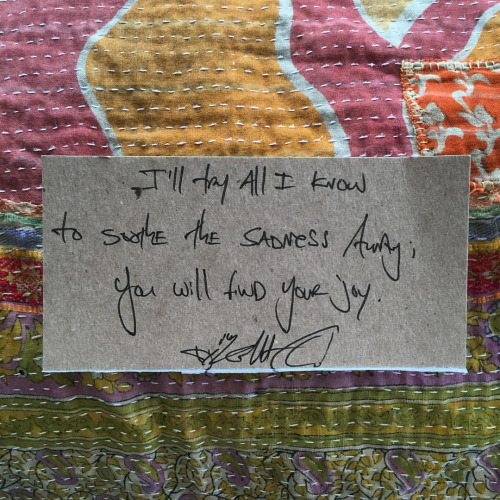 I'll try All I know
to soothe the SADNESS Away;
you will find your joy.